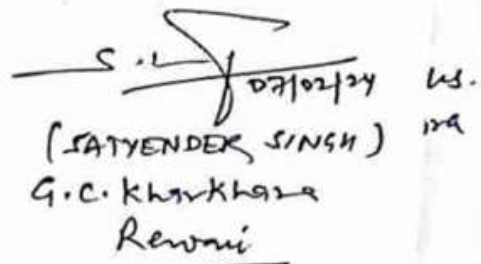 07/02/24
(SATYENDER SINGH)
G.C. Kharkhara
Rewari